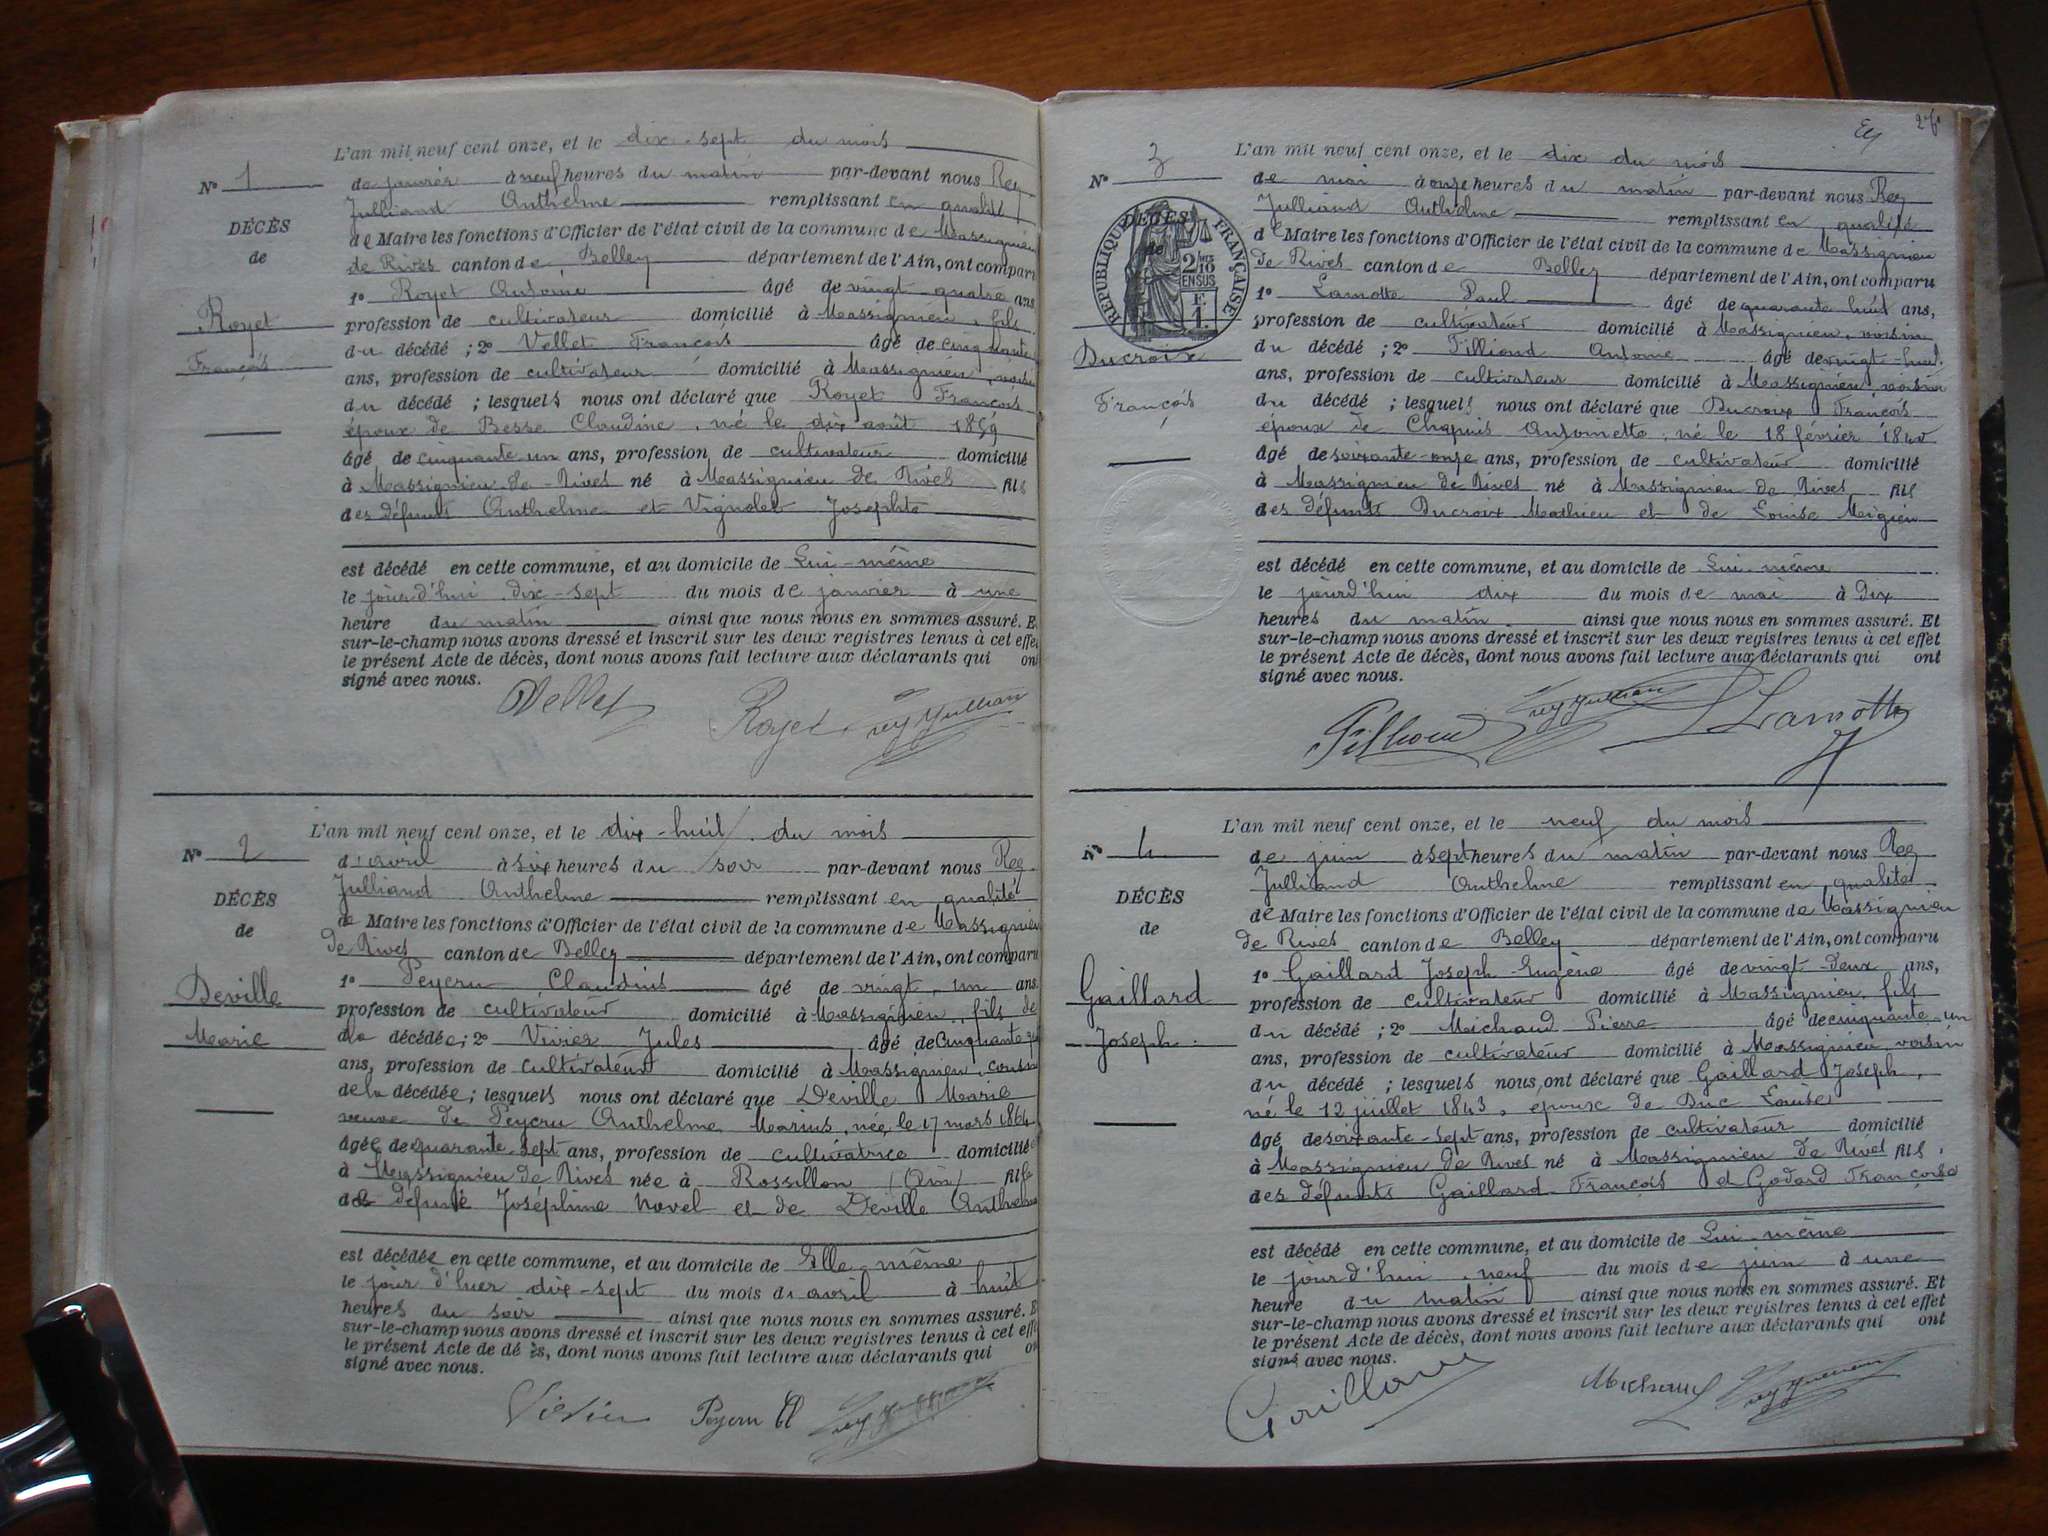 L'an mil neuf cent onze, et le dix-sept du mois
N° 1 de janvier à neuf heures du matin par-devant nous Rey
Julliand Anthelme remplissant en qualité
DÉCÈS
de Maire les fonctions d'Officier de l'état civil de la commune de Massignieu
de
de Rives canton de Belley département de l'Ain, ont comparu
1° Royet Antoine âgé de vingt quatre ans,
Royet
profession de cultivateur domicilié à Massignieu, fils
François
du décédé ; 2° Vellet François âgé de cinquante
ans, profession de cultivateur domicilié à Massignieu, voisin
du décédé ; lesquels nous ont déclaré que Royet François
époux de Besse Claudine, né le dix août 1859
âgé de cinquante un ans, profession de cultivateur domicilié
à Massignieu de Rives né à Massignieu de Rives fils
des défunts Anthelme et Vignolet Josephte
est décédé en cette commune, et au domicile de Lui-même
le jourd'hui dix-sept du mois de janvier à une
heure du matin ainsi que nous nous en sommes assuré. Et
sur-le-champ nous avons dressé et inscrit sur les deux registres tenus à cet effet
le présent Acte de décès, dont nous avons fait lecture aux déclarants qui ont
signé avec nous.
Vellet Royet Rey Julliand
L'an mil neuf cent onze, et le dix-huit du mois
N° 2 d'avril à six heures du soir par-devant nous Rey
Julliand Anthelme remplissant en qualité
DÉCÈS
de Maire les fonctions d'Officier de l'état civil de la commune de Massignieu
de
de Rives canton de Belley département de l'Ain, ont comparu
1° Peycru Claudius âgé de vingt un ans
Deville
profession de cultivateur domicilié à Massignieu, fils de
Marie
la décédée ; 2° Vivier Jules âgé de cinquante
ans, profession de cultivateur domicilié à Massignieu, cousin
de la décédée ; lesquels nous ont déclaré que Deville Marie
veuve de Peycru Anthelme Marius, née le 17 mars 1864
âgée de quarante-sept ans, profession de cultivatrice domiciliée
à Massignieu de Rives née à Rossillon (Ain) fille
de défunte Joséphine Novel et de Deville Anthelme
est décédée en cette commune, et au domicile de Elle-même
le jour d'hier dix-sept du mois d'avril à huit
heures du soir ainsi que nous nous en sommes assuré. Et
sur-le-champ nous avons dressé et inscrit sur les deux registres tenus à cet effet
le présent Acte de décès, dont nous avons fait lecture aux déclarants qui on
signé avec nous.
Vivier Peycru Cl Rey Julliand
27
L'an mil neuf cent onze, et le dix du mois
N° 3 de mai à onze heures du matin par-devant nous Rey
Julliand Anthelme remplissant en qualité
DÉCÈS
RÉPUBLIQUE FRANÇAISE
2/10 EN SUS
F. 1.
de Maire les fonctions d'Officier de l'état civil de la commune de Massignieu
de
de Rives canton de Belley département de l'Ain, ont comparu
1° Lamotte Paul âgé de quarante huit ans,
profession de cultivateur domicilié à Massignieu, voisin
Ducroix
du décédé ; 2° Filliond Antoine âgé de vingt-huit
ans, profession de cultivateur domicilié à Massignieu, voisin
François
du décédé ; lesquels nous ont déclaré que Ducroix François
époux de Chapuis Antoinette, né le 18 février 1840
âgé de soixante-onze ans, profession de cultivateur domicilié
à Massignieu de Rives né à Massignieu de Rives fils
des défunts Ducroix Mathieu et de Louise
est décédé en cette commune, et au domicile de Lui-même
le jourd'hui dix du mois de mai à Dix
heures du matin ainsi que nous nous en sommes assuré. Et
sur-le-champ nous avons dressé et inscrit sur les deux registres tenus à cet effet
le présent Acte de décès, dont nous avons fait lecture aux déclarants qui ont
signé avec nous.
Filliond Rey Julliand Lamotte
L'an mil neuf cent onze, et le neuf du mois
N° 4 de juin à sept heures du matin par-devant nous Rey
Julliand Anthelme remplissant en qualité
DÉCÈS
de Maire les fonctions d'Officier de l'état civil de la commune de Massignieu
de
de Rives canton de Belley département de l'Ain, ont comparu
1° Gaillard Joseph Eugène âgé de vingt-deux ans,
Gaillard
profession de cultivateur domicilié à Massignieu, fils
Joseph
du décédé ; 2° Michaud Pierre âgé de cinquante-un
ans, profession de cultivateur domicilié à Massignieu, voisin
du décédé ; lesquels nous ont déclaré que Gaillard Joseph,
né le 12 juillet 1843, époux de Duc Louise
âgé de soixante-sept ans, profession de cultivateur domicilié
à Massignieu de Rives né à Massignieu de Rives fils
des défunts Gaillard François et Godard Françoise
est décédé en cette commune, et au domicile de Lui-même
le jourd'hui neuf du mois de juin à une
heure du matin ainsi que nous nous en sommes assuré. Et
sur-le-champ nous avons dressé et inscrit sur les deux registres tenus à cet effet
le présent Acte de décès, dont nous avons fait lecture aux déclarants qui ont
signé avec nous.
Gaillard Michaud Rey Julliand